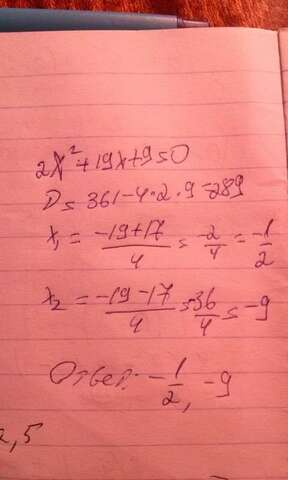 2x²+19x+9=0
D = 361-4·2·9=289
x₁ = (-19+17)/4 = -2/4 = -1/2
x₂ = (-19-17)/4 = 36/4 = -9
Ответ: -1/2, -9
2,5